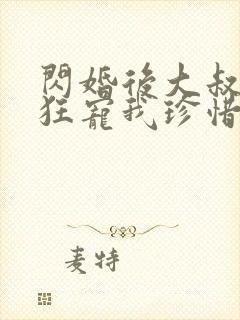 閃婚後大叔
狂寵我珍惜
麦特